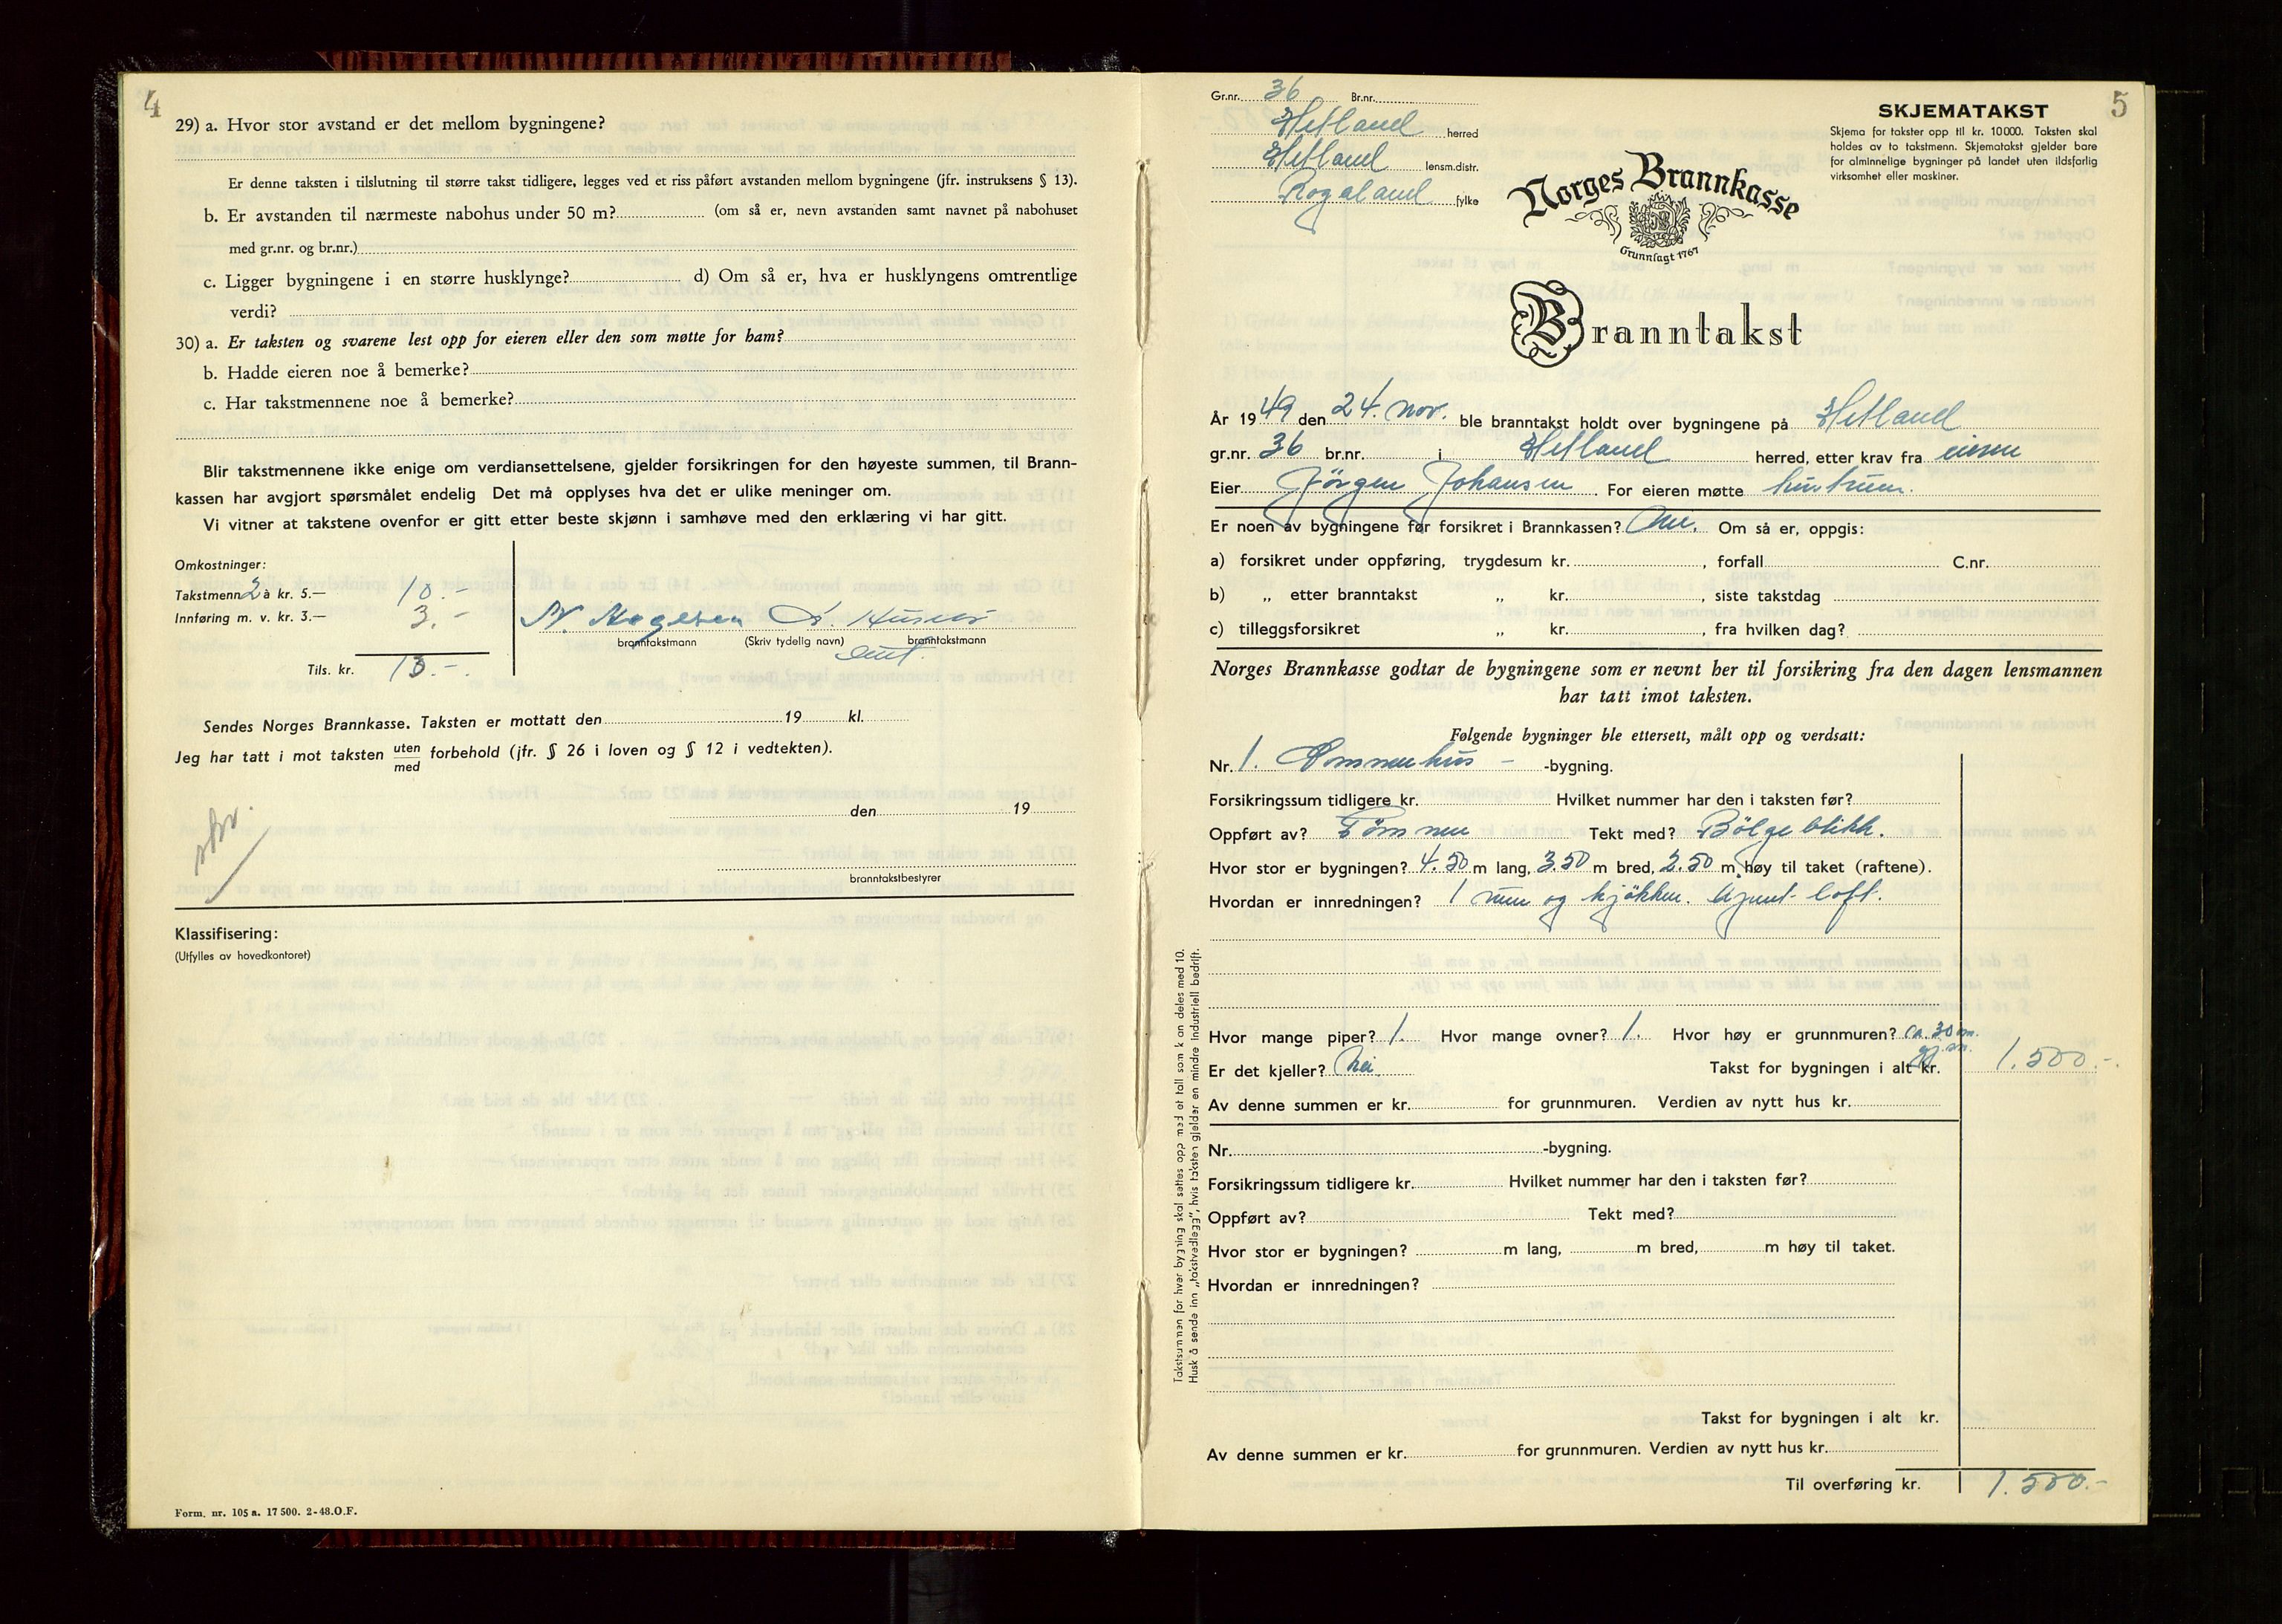 4
29) a. Hvor stor avstand er det mellom bygningene?
Er denne taksten i tilslutning til større takst tidligere, legges ved et riss påført avstanden mellom bygningene (jfr. instruksens § 13).
b. Er avstanden til nærmeste nabohus under 50 m? (om så er, nevn avstanden samt navnet på nabohuset
med gr.nr. og br.nr.)
c. Ligger bygningene i en større husklynge? d) Om så er, hva er husklyngens omtrentlige
verdi?
30) a. Er taksten og svarene lest opp for eieren eller den som møtte for ham?
b. Hadde eieren noe å bemerke?
c. Har takstmennene noe å bemerke?
Blir takstmennene ikke enige om verdiansettelsene, gjelder forsikringen for den høyeste summen, til Brann-
kassen har avgjort spørsmålet endelig Det må opplyses hva det er ulike meninger om.
Vi vitner at takstene ovenfor er gitt etter beste skjønn i samhøve med den erklæring vi har gitt.
Omkostninger:
Takstmenn 2 à kr. 5.— 10.-
Innføring m. v. kr. 3.— 3.-
branntakstmann (Skriv tydelig navn) branntakstmann
Tils. kr. 13.-
Sendes Norges Brannkasse. Taksten er mottatt den 19 kl.
Jeg har tatt i mot taksten uten
med forbehold (jfr. § 26 i loven og § 12 i vedtekten).
den 19
branntakstbestyrer
Klassifisering:
(Utfylles av hovedkontoret)
Form. nr. 105 a. 17 500. 2-48.O.F.
5
Gr.nr. 36 Br.nr.
Hetland herred
Hetland lensm.distr.
Rogaland fylke
SKJEMATAKST
Skjema for takster opp til kr. 10 000. Taksten skal
holdes av to takstmenn. Skjematakst gjelder bare
for alminnelige bygninger på landet uten ildsfarlig
virksomhet eller maskiner.
Norges Brannkasse
Grunnlagt 1767
Branntakst
År 1949 den 24. nov. ble branntakst holdt over bygningene på Hetland
gr.nr. 36 br.nr. i Hetland herred, etter krav fra eieren
Eier Jörgen Johansen. For eieren møtte hustruen.
Er noen av bygningene før forsikret i Brannkassen? Om så er, oppgis:
a) forsikret under oppføring, trygdesum kr. , forfall C.nr.
b) „ etter branntakst „ kr. , siste takstdag
c) tilleggsforsikret „ kr. , fra hvilken dag?
Norges Brannkasse godtar de bygningene som er nevnt her til forsikring fra den dagen lensmannen
har tatt imot taksten.
Følgende bygninger ble ettersett, målt opp og verdsatt:
Nr. 1. Sommerhus - -bygning.
Forsikringssum tidligere kr. Hvilket nummer har den i taksten før?
Oppført av? Tømmer Tekt med? Bölgeblikk.
Hvor stor er bygningen? 4.50 m lang, 3.50 m bred, 2.50 m høy til taket (raftene).
Hvordan er innredningen? 1 rum og kjökken. loft.
Hvor mange piper? 1. Hvor mange ovner? 1. Hvor høy er grunnmuren? ca. 30 cm.
Er det kjeller? Nei. Takst for bygningen i alt kr. 1.500.-
Av denne summen er kr. for grunnmuren. Verdien av nytt hus kr.
Nr. -bygning.
Forsikringssum tidligere kr. Hvilket nummer har den i taksten før?
Oppført av? Tekt med?
Hvor stor er bygningen? m lang, m bred, m høy til taket.
Hvordan er innredningen?
Takst for bygningen i alt kr.
Av denne summen er kr. for grunnmuren. Verdien av nytt hus kr.
Til overføring kr. 1.500.-
Takstsummen for hver bygning skal settes opp med et tall som kan deles med 10.
Husk å sende inn „takstvedlegg", hvis taksten gjelder en mindre industriell bedrift.